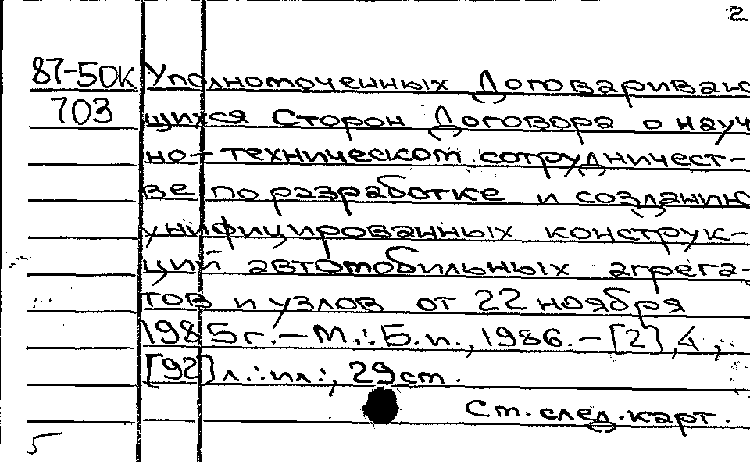 2
87-50К Уполномоченных Договариваю
703 щихся Сторон Договора о науч
но-техническом сотрудничест-
ве по разработке и созданию
унифицированных конструк-
ций автомобильных агрега-
тов и узлов от 22 ноября
1985г.-М.:Б.и.,1986.-[2],4,
[92]л.:ил:,29см.
См.след.карт.
5